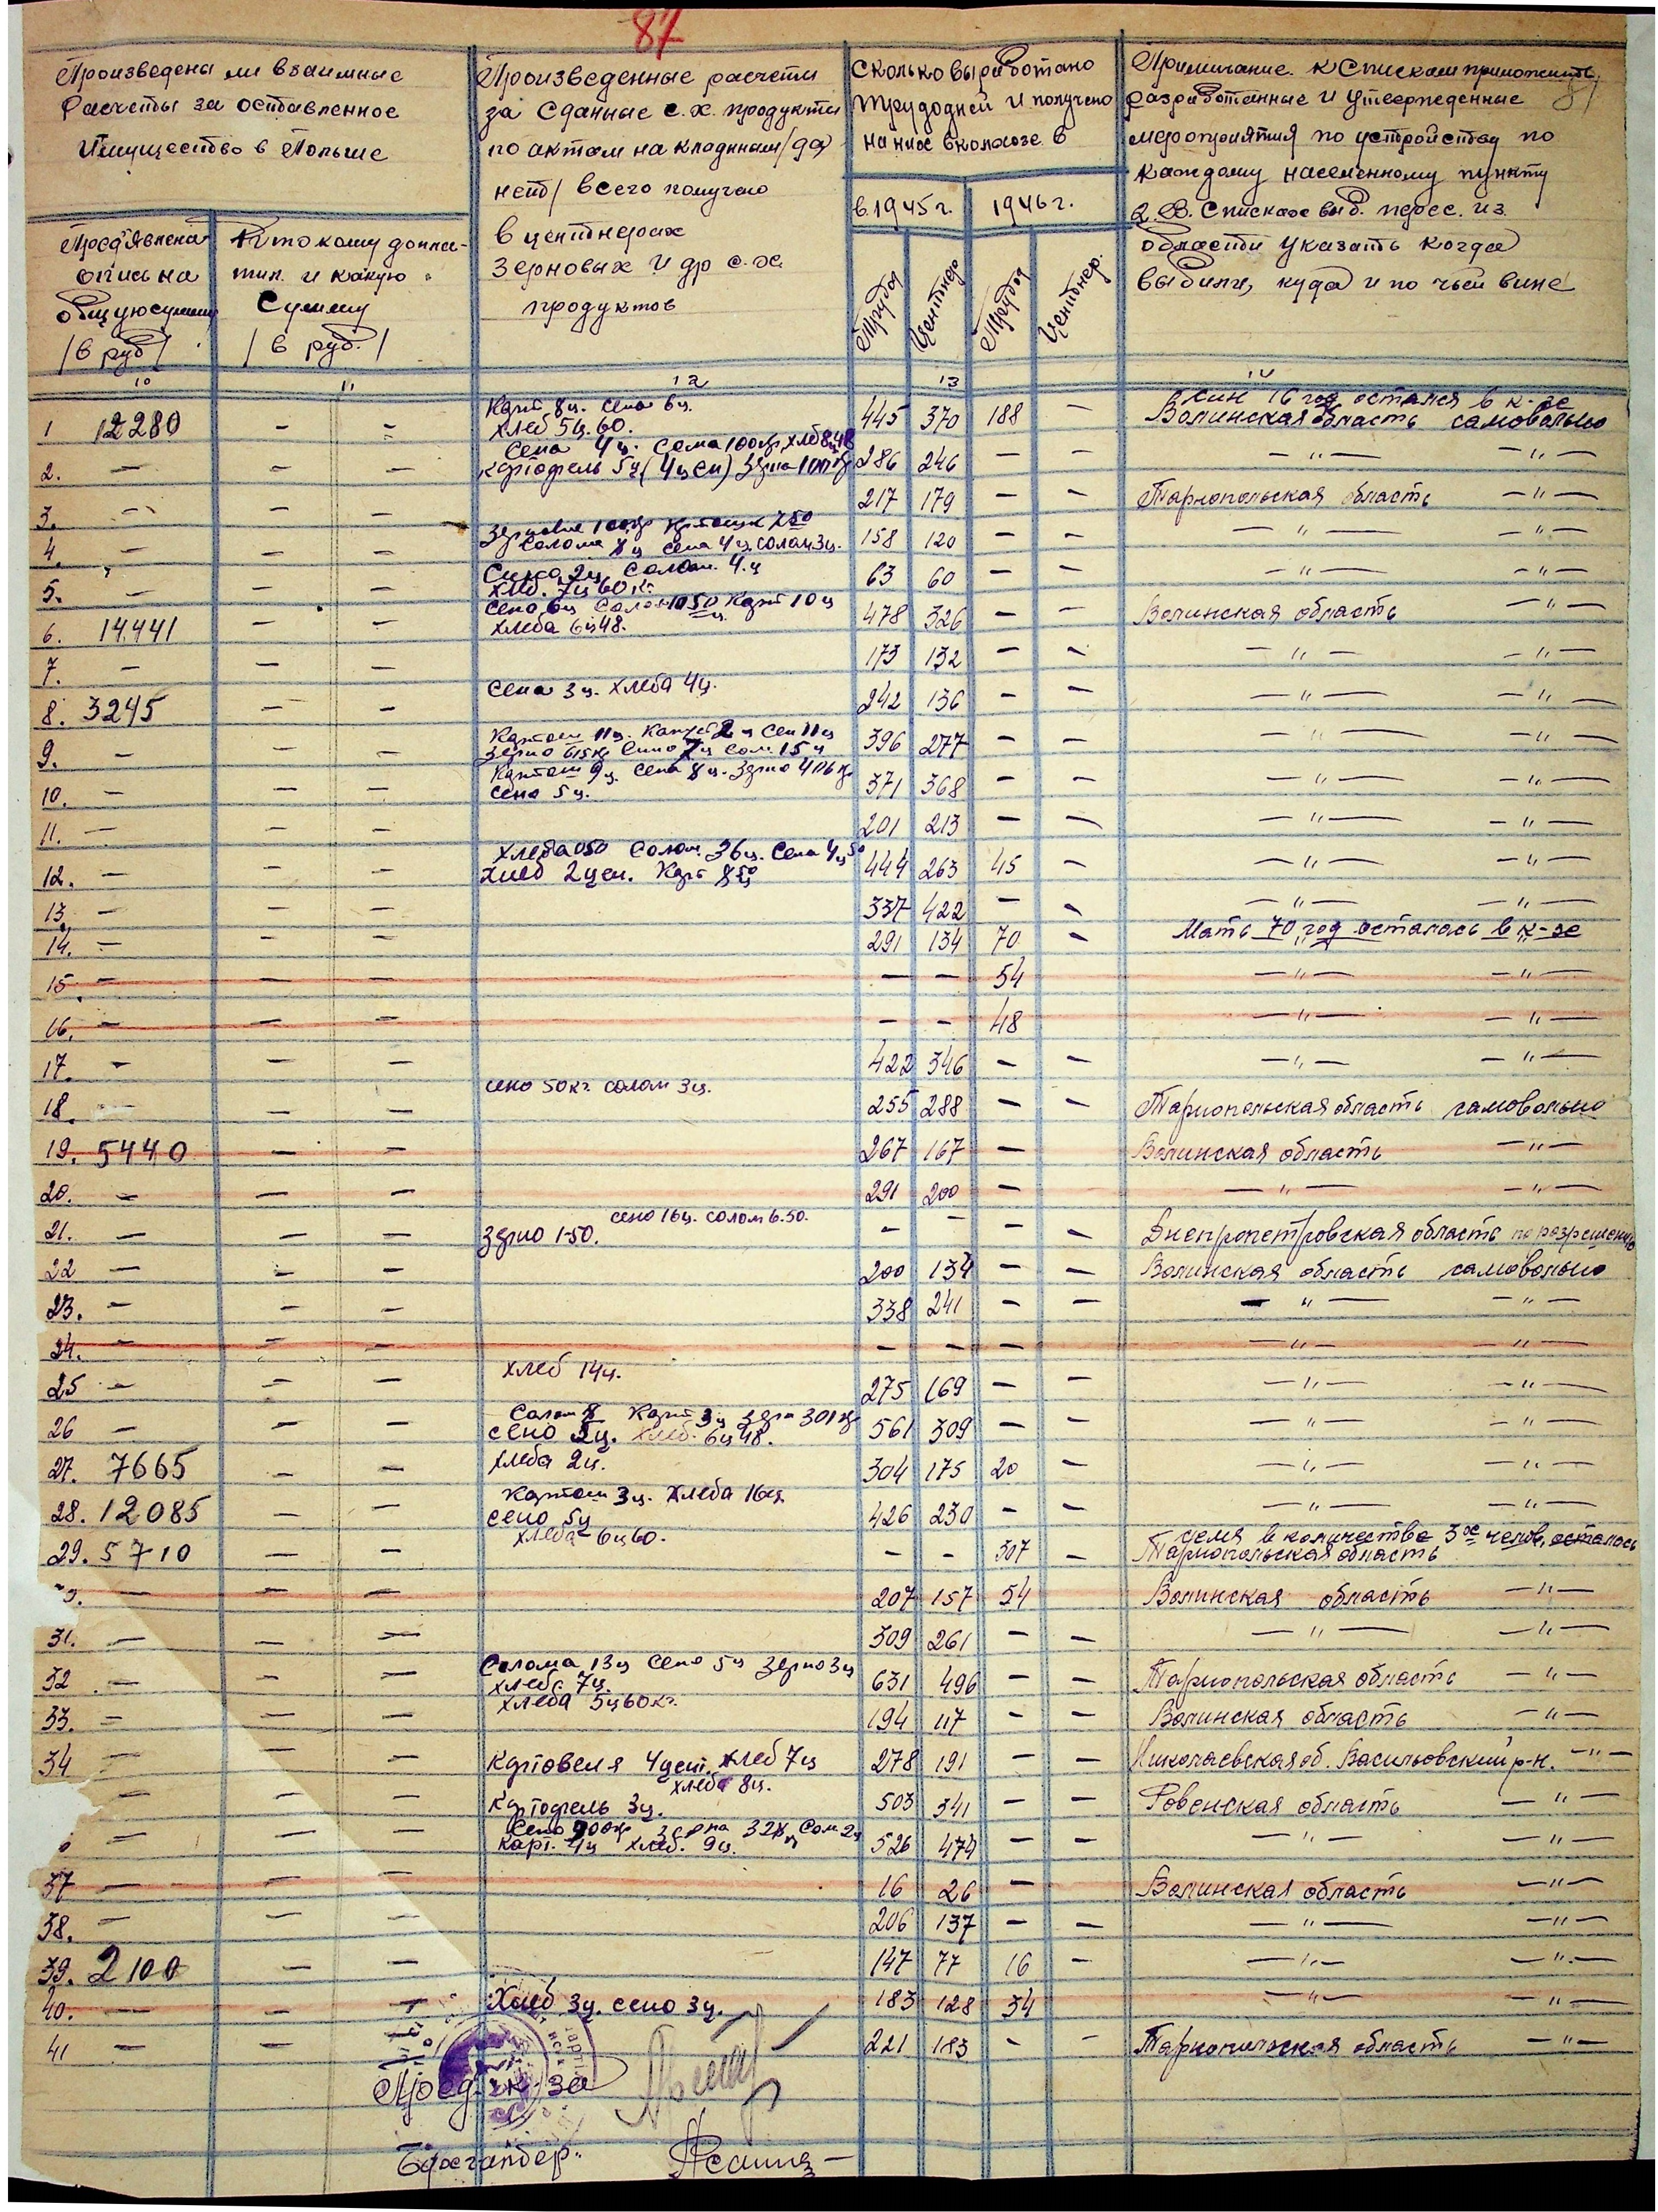 87
Произведены ли взаимные
расчеты за оставленное
Имущество в Польше
Пред'явлена
опись на
общую сумму
/в руб/
Кто кому доплатил и какую
Сумму
/в руб./
Произведенные расчеты
за сданные с.х. продукты
по актам накладным/да
нет/ всего получено
в центнерах
Зерновых и др с.х.
продуктов
Сколько выработано
трудодней и получено
на них в колхозе в
в 1945 г. 1946 г.
Труддн Центнер Труддн Центнер.
Примичание. К Спискам приложить
разработанные и утвержеденные
мероприятия по устройству по
каждому населенному пункту
2. В. Списках выб. перес. из
области указать когда
выбили, куда и по чьей вине
10 11 12 13 14
Карт 8ц. сена 6ц. Сын 16 год остался в к-зе
1 12280 - - хлеб 5ц.60. 445 370 188 - Волинская область самовольно
Сена 4ц. Сома 100кг хлб 8ц48
2. - - - картофель 5ц (4ц сн) Зерна 100кг 286 246 - - -"- -"-
3. - - - 217 179 - - Тарнопольская область -"-
Зерновые 100кг
4. - - - Солома 8ц сена 4ц. солом 3ц. 158 120 - - -"- -"-
Сина 2ц Солом. 4.ц
5. - - - Хлеб. 7ц 60 кг. 63 60 - - -"- -"-
Сено 6ц Солом 1050 Карт 10ц
6. 14.441 - - хлеба 6ц48. 478 326 - - Волинская область -"-
7. - - - 173 132 - - -"- -"-
8. 3245 - - Сена 3ц. хлеба 4ц. 242 136 - - -"- -"-
Картош 11ц. Капуст 2ц Сен 11ц
9. - - - зерно 615кг Сино 7ц сол. 15ц 396 277 - - -"- -"-
Картош 9ц. Сена 8ц. Зерно 406кг
10. - - - сено 5ц. 371 368 - - -"- -"-
11. - - - 201 213 - - -"- -"-
хлеба 050 Солом. 36ц. Сена 4ц 50
12. - - - хлеб 2цен. Карт 850 444 263 45 - -"- -"-
13. - - - 337 422 - - -"- -"-
14. - - - 291 134 70 - Мать 70 год осталась в к-зе
15. - - - - - 54 -"- -"-
16. - - - - - 48 -"- -"-
17. - - - 422 346 - - -"- -"-
18. - - - сено 50кг солом 3ц. 255 288 - - Тарнопольская область самовольно
19. 5440 - - 267 167 - Волинская область -"-
20. - - - 291 200 - -"- -"-
сено 16ц. солом 6.50.
21. - - - зерно 1-50. - - - - Днепропетровская область по разрешению
22 - - - 200 134 - - Волинская область самовольно
23. - - - 338 241 - - -"- -"-
24. - - - - - - -"- -"-
25 - - - хлеб 14ц. 275 169 - - -"- -"-
Солом 8 Карт 3ц зерн 301кг
26 - - - сено 2ц. хлеб. 6ц48. 561 309 - - -"- -"-
27. 7665 - - хлеба 2ц. 304 175 20 - -"- -"-
Картош 3ц. Хлеба 16ц
28. 12085 - сено 5ц 426 230 - - -"- -"-
хлеба 6ц60. Семя в количестве 3ох челов. осталось
29. 5710 - - - - 307 - Тарнопольская область
- - - 207 157 54 Волинская область -"-
31. - - - 309 261 - - -"- -"-
Солома 13ц Сено 5ц Зерно 3ц
32 - - - хлеб 7ц. 631 496 - - Тарнопольская область -"-
33. - - - хлеба 5ц60кг. 194 117 - - Волинская область -"-
34 - - - Картовеля 4цент. хлеб 7ц 278 191 - - Николаевская об. Васильовский р-н. -"-
хлеба 8ц.
- - - Картофель 3ц. 503 341 - - Ровенская область -"-
Сено 900кг зерна 32кг Сол 2ц
- - - Карт. 4ц хлеб. 9ц. 526 474 - - -"- -"-
37 - - - 16 26 - Волинская область -"-
38. - - - 206 137 - - -"- -"-
39. 2100 - - 147 77 16 - -"- -"-
40. - - - Хлеб 3ц. сено 3ц. 183 128 34 -"- -"-
41 - - - 221 183 - - Тарнопильская область -"-
Пред. к-за
Бухгалтер.